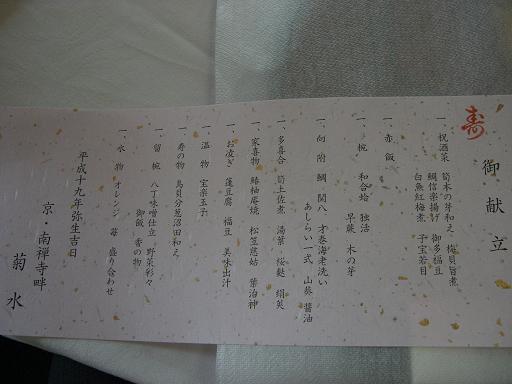 寿
御献立
一、祝酒菜 筍木の芽和え 梅貝旨煮
鯛信楽揚げ 御多福豆
白魚紅梅煮 子宝若目
一、赤飯
一、椀 和合蛤 独活
早蕨 木の芽
一、向附 鯛 関八 才巻海老洗い
あしらい一式 山葵 醤油
一、多喜合 筍土佐煮 湯葉 桜麩 絹莢
一、家喜物 鰆柚庵焼 松笠慈姑 葉治神
一、お凌ぎ 蓮豆腐 福豆 美味出汁
一、温物 宝楽玉子
一、寿の物 鳥貝分葱沼田和え
一、留椀 八丁味噌仕立 野菜彩々
御飯 香の物
一、水物 オレンジ 苺 盛り合わせ
平成十九年弥生吉日
京・南禅寺畔
菊水